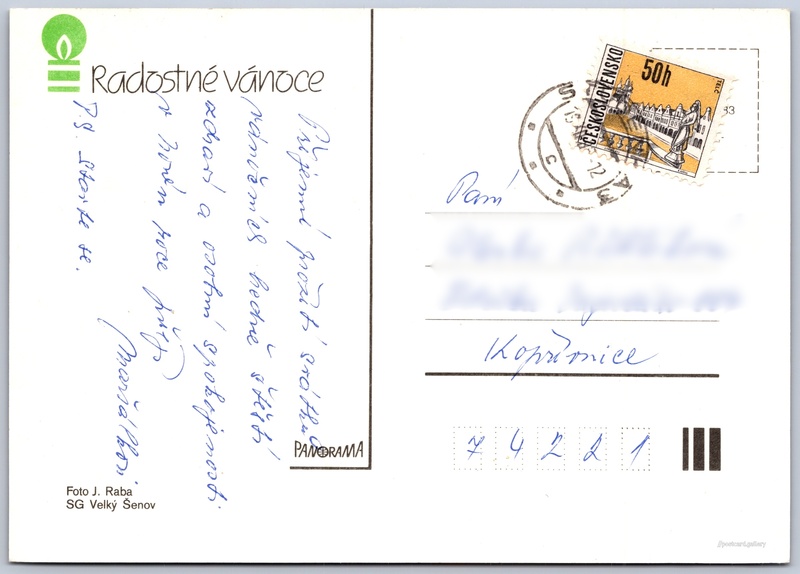 Radostné vánoce
Příjemné prožití svátků
vánočních hodně štěstí
zdraví a osobní spokojenosti
v Novém roce přejí
P.S. Stavte se.
PANORAMA
Foto J. Raba
SG Velký Šenov
ČESKOSLOVENSKO
50h
TELČ
Paní
Kopřivnice
74221
postcard.gallery